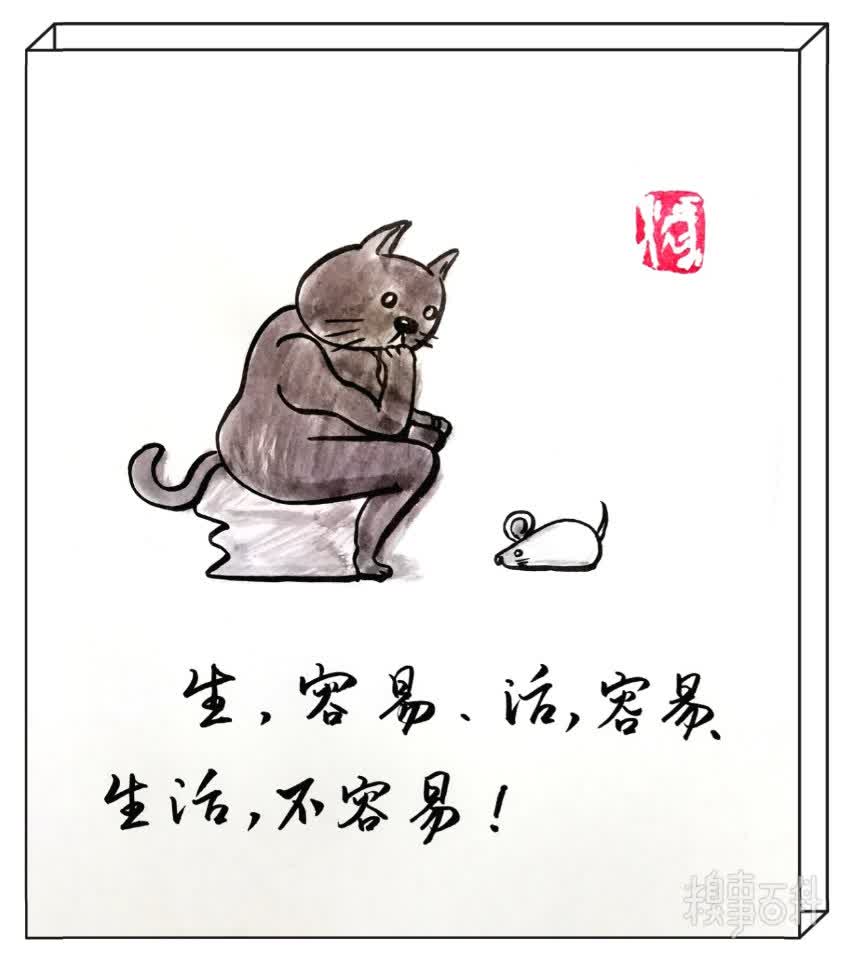 生，容易、活，容易、
生活，不容易！
糗事百科